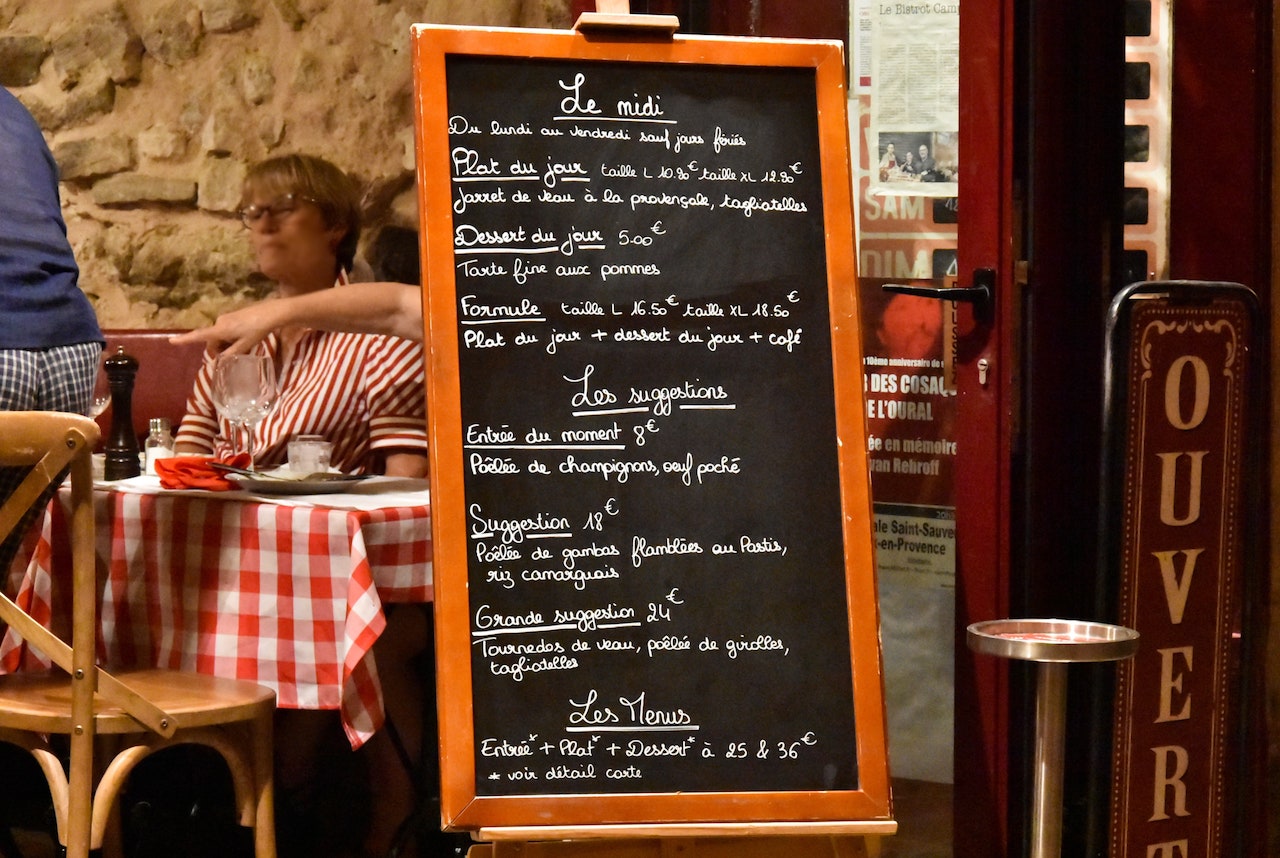 Le midi
Du lundi au vendredi sauf jours fériés
Plat du jour taille L 10.90€ taille XL 12.90€
Jarret de veau à la provençale, tagliatelles
Dessert du jour 5.00€
Tarte fine aux pommes
Formule taille L 16.50€ taille XL 18.50€
Plat du jour + dessert du jour + café
Les suggestions
Entrée du moment 8€
Poêlée de champignons, oeuf poché
Suggestion 18€
Poêlée de gambas flamblées au Pastis,
riz camarguais
Grande suggestion 24€
Tournedos de veau, poêlée de girolles,
tagliatelles
Les Menus
Entrée* + Plat* + Dessert* à 25 & 36€
* voir détail carte
Le Bistrot
SAM
DIM
10ème anniversaire
DES COSAQ
L'OURAL
en mémoire
van Rebroff
Saint-Sauve
en-Provence
OUVERT